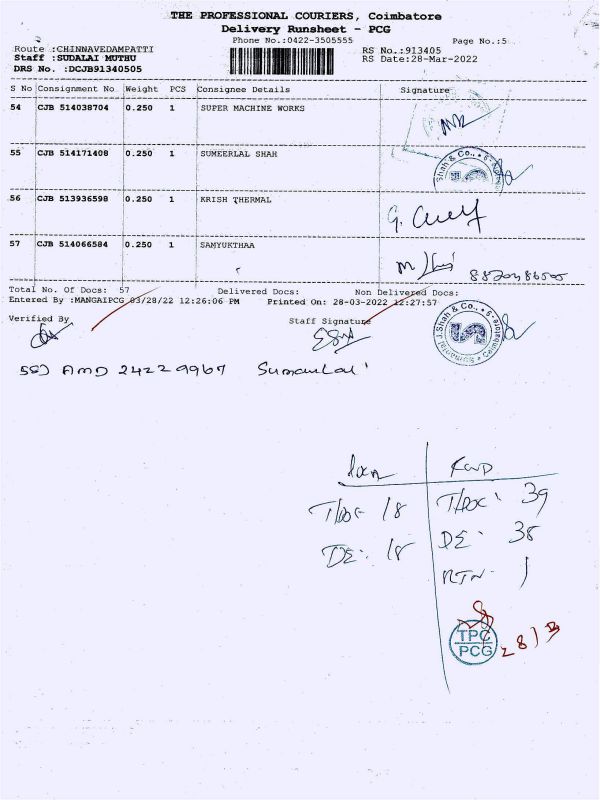 THE PROFESSIONAL COURIERS, Coimbatore
Delivery Runsheet - PCG
Phone No.:0422-3505555
Page No.:5
Route :CHINNAVEDAMPATTI
RS No.:913405
Staff :SUDALAI MUTHU
RS Date:28-Mar-2022
DRS No. :DCJB91340505
S No Consignment No Weight PCS Consignee Details Signature
54 CJB 514038704 0.250 1 SUPER MACHINE WORKS
55 CJB 514171408 0.250 1 SUMEERLAL SHAH
56 CJB 513936598 0.250 1 KRISH THERMAL
57 CJB 514066584 0.250 1 SAMYUKTHAA
Total No. Of Docs: 57 Delivered Docs: Non Delivered Docs:
Entered By :MANGAIPCG 03/28/22 12:26:06 PM Printed On: 28-03-2022 12:27:57
Verified By
Staff Signature
J.Shah & Co.,
AMD 24229967
TDOC 18
TDOC: 39
DE: 18
DE: 38
RTN- 1
TPC
PCG
28/3